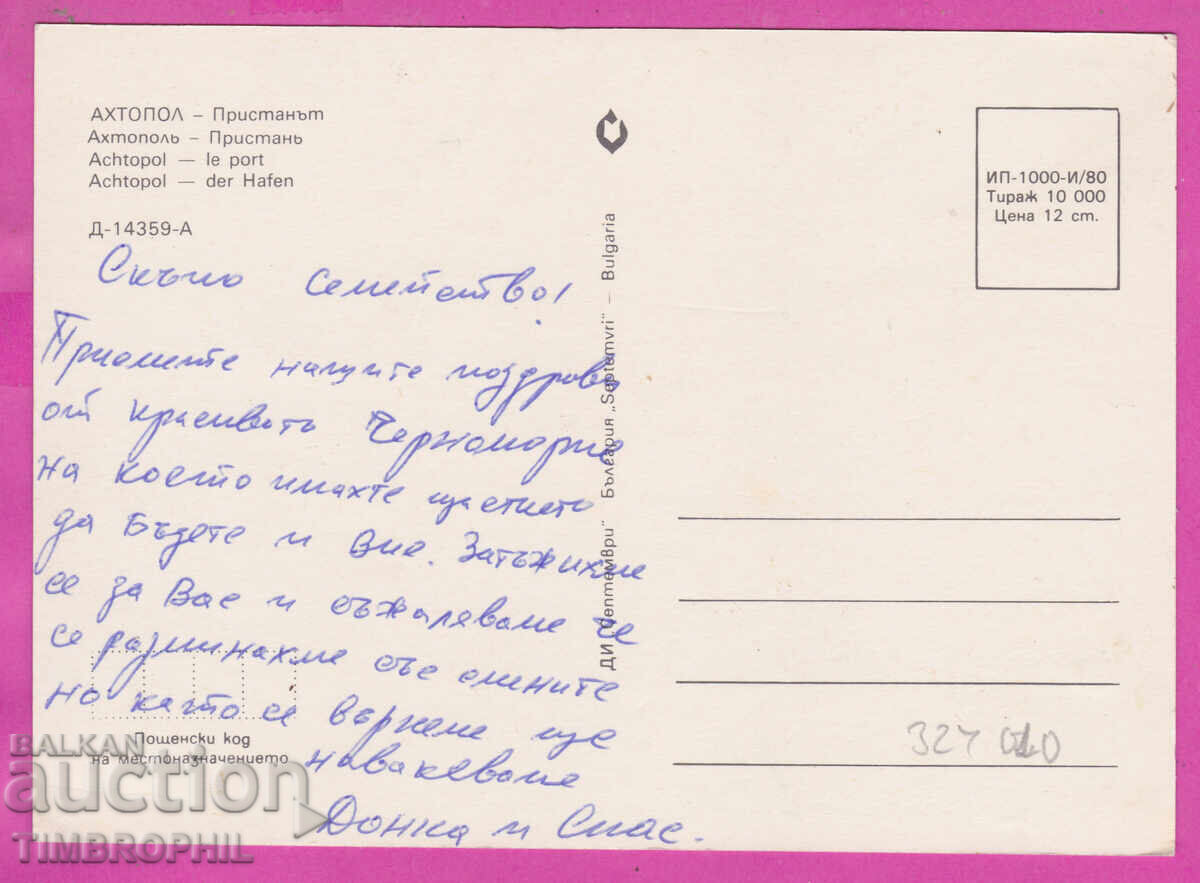 АХТОПОЛ – Пристанът
Ахтополь – Пристань
Achtopol — le port
Achtopol — der Hafen
Д-14359-А
ИП-1000-И/80
Тираж 10 000
Цена 12 ст.
Скъпо семейство!
Приемете нашите поздрави
от красивото Черноморие
на което имахте щастието
да бъдете и Вие. Затъжихме
се за Вас и съжаляваме че
се разминахме със смените
но като се върнем ще
наваксваме
Донка и Спас.
ДИ „Септември" България „Septemvri" – Bulgaria
Пощенски код
на местоназначението
BALKAN
auction
TIMBROPHIL